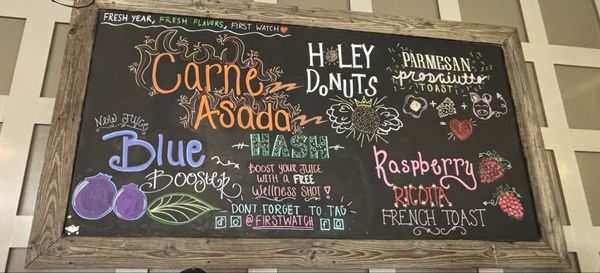 FRESH YEAR, FRESH FLAVORS, FIRST WATCH
Carne
Asada
HASH
HOLEY
DONUTS
PARMESAN
prosciutto
TOAST
NEW JUICE
Blue
Booster
BOOST YOUR JUICE
WITH A FREE
Wellness SHOT!
DON'T FORGET TO TAG
@FIRSTWATCH
Raspberry
RICOTTA
FRENCH TOAST